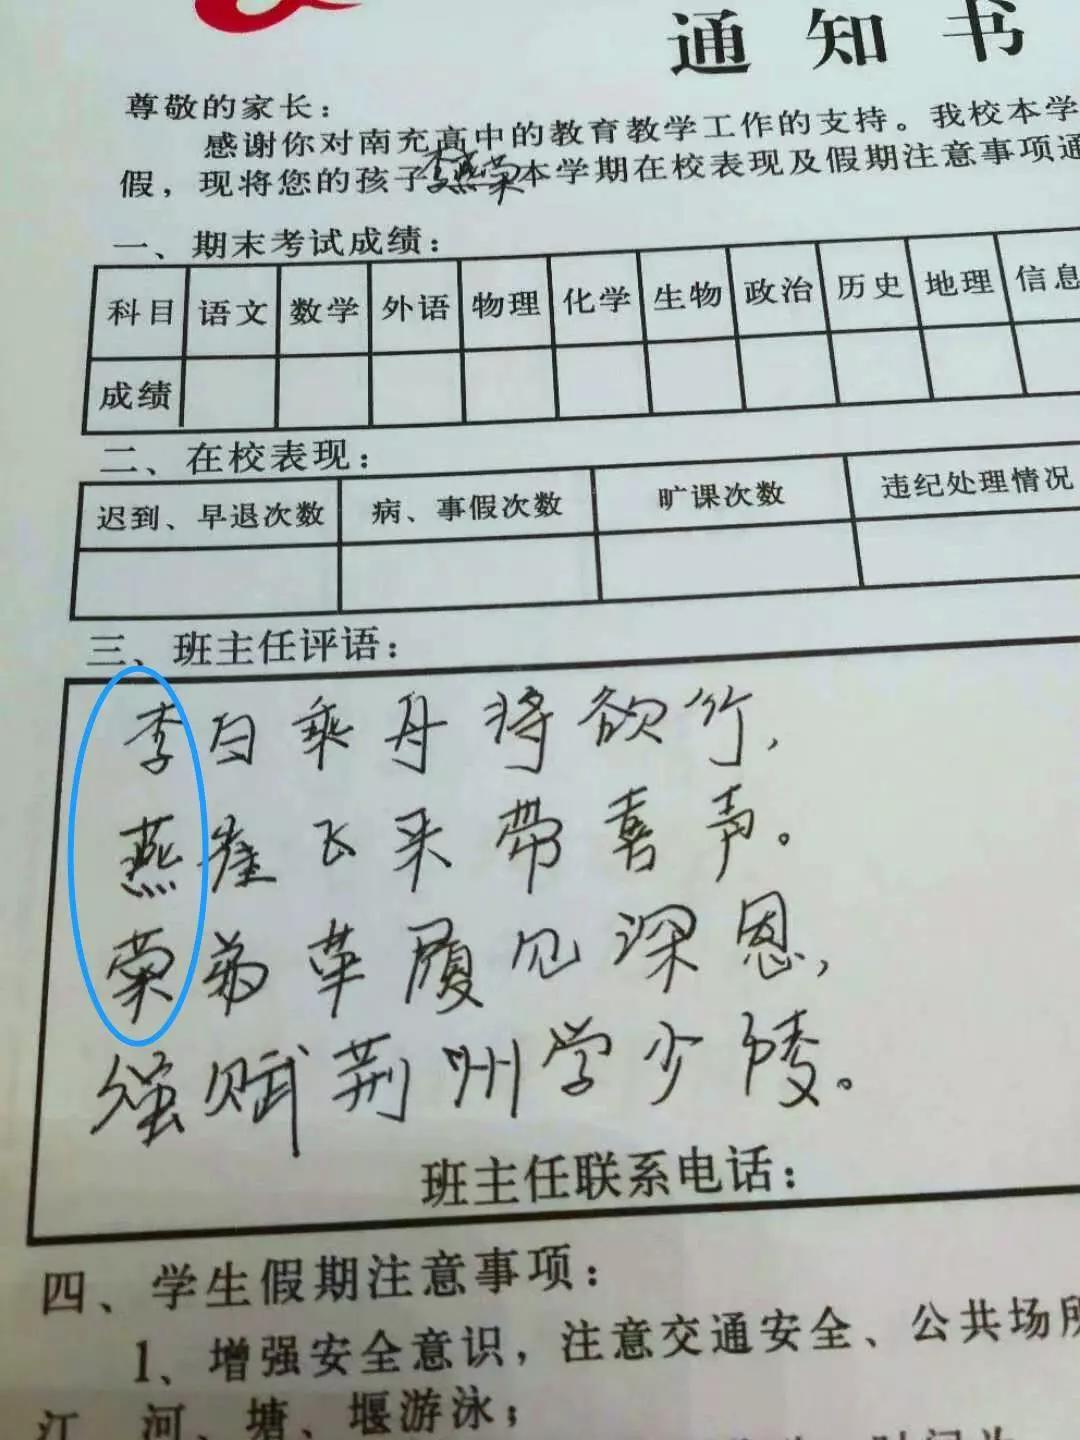 通知书
尊敬的家长：
感谢你对南充高中的教育教学工作的支持。我校本学
假，现将您的孩子李燕荣本学期在校表现及假期注意事项通
一、期末考试成绩：
科目 语文 数学 外语 物理 化学 生物 政治 历史 地理 信息
成绩
二、在校表现：
迟到、早退次数 病、事假次数 旷课次数 违纪处理情况
三、班主任评语：
李白乘舟将欲行，
燕雀飞来带喜声。
荣弟革履见深恩，
强赋荆州学少陵。
班主任联系电话：
四、学生假期注意事项：
1、增强安全意识，注意交通安全、公共场所
江、河、塘、堰游泳；